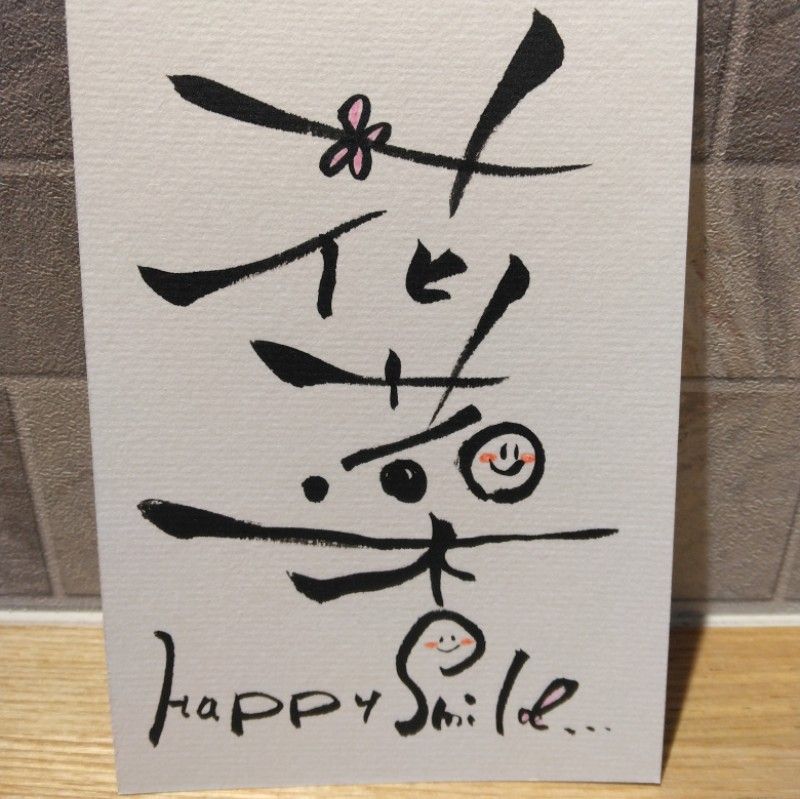 花
菜
Happy Smile...